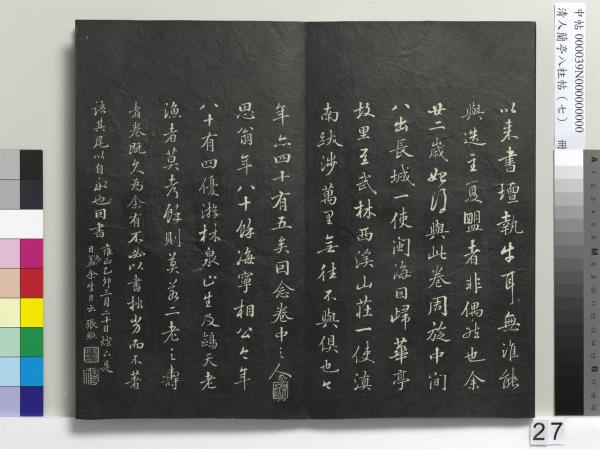 中帖 000039N000000000
清人蘭亭八柱帖（七） 冊
以来書壇執牛耳無誰能
與迭主夏盟者非偶然也余
廿二歲始得與此卷周旋中間
八出長城一使閩海日歸華亭
故里至武林西溪山莊一使滇
南跋涉萬里無往不與俱也七
年六四十有五矣回念卷中之人
思翁年八十餘海寧相公之年
八十有四優游林泉
漁者莫考餘則莫若二老之壽
者卷既久為余有不必以書拙劣而不著
語其尾以自永也因書
雍正乙卯三月二十日
日為余生日云 張照
27